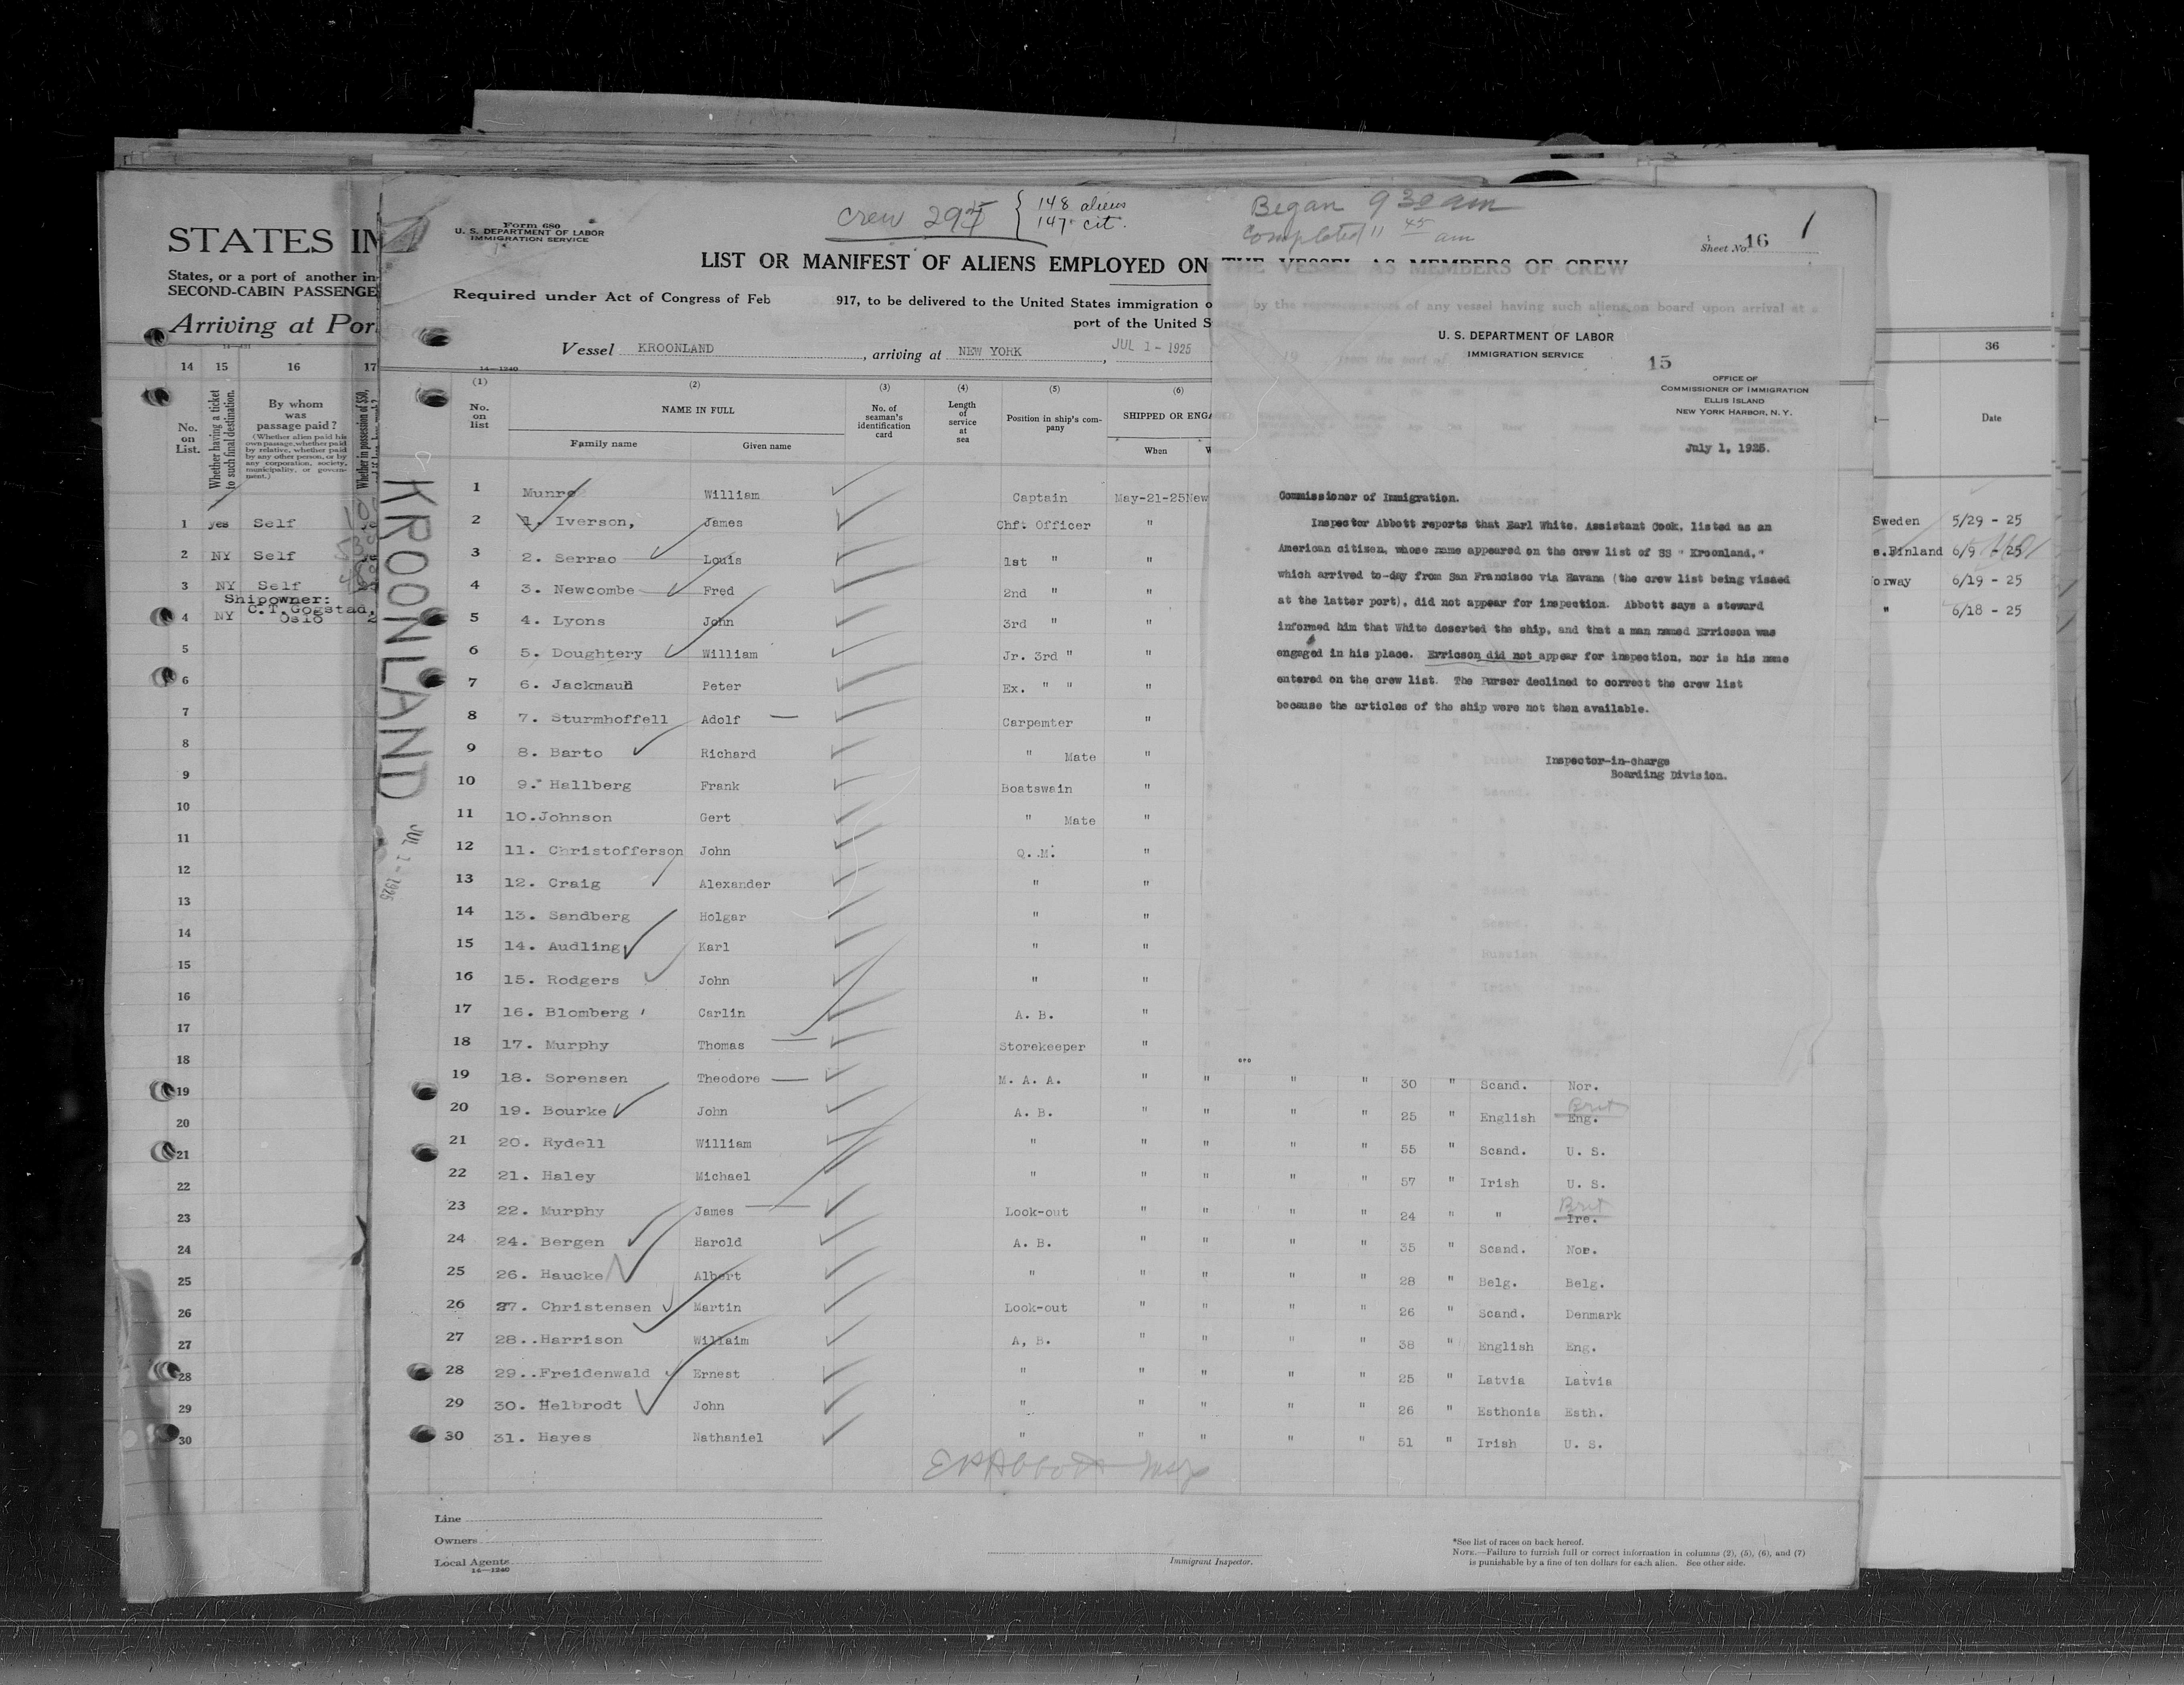 STATES IN
States, or a port of another in-
SECOND-CABIN PASSENGE
Arriving at Por
14 15 16 17
No. on List.
Whether having a ticket to such final destination.
By whom was passage paid?
(Whether alien paid his own passage, whether paid by relative, whether paid by any other person, or by any corporation, society, municipality, or government.)
Whether in possession of $50,
1 yes Self
2 NY Self
3 NY Self
Shipowner:
C.T.Gogstad,
4 NY Oslo
5
6
7
8
9
10
11
12
13
14
15
16
17
18
19
20
21
22
23
24
25
26
27
28
29
30
KROONLAND
JUL 1 - 1925
Form 680
U. S. DEPARTMENT OF LABOR
IMMIGRATION SERVICE
crew 295 { 148 aliens
147 cit.
Began 9 30 am
Completed 11 45 am
Sheet No. 16
1
LIST OR MANIFEST OF ALIENS EMPLOYED ON THE VESSEL AS MEMBERS OF CREW
Required under Act of Congress of Feb 917, to be delivered to the United States immigration o by the representatives of any vessel having such aliens on board upon arrival at a
port of the United S
Vessel KROONLAND, arriving at NEW YORK, JUL 1 - 1925
14—1240
(1) (2) (3) (4) (5) (6)
No. on list
NAME IN FULL
Family name Given name
No. of seaman's identification card
Length of service at sea
Position in ship's company
SHIPPED OR ENGA
When W
1 Munro William Captain May-21-25 New
2 1. Iverson, James Chf. Officer "
3 2. Serrao Louis 1st " "
4 3. Newcombe Fred 2nd " "
5 4. Lyons John 3rd " "
6 5. Doughtery William Jr. 3rd " "
7 6. Jackmaun Peter Ex. " " "
8 7. Sturmhoffell Adolf Carpemter "
9 8. Barto Richard " Mate "
10 9. Hallberg Frank Boatswain "
11 10. Johnson Gert " Mate "
12 11. Christofferson John Q. M. "
13 12. Craig Alexander " "
14 13. Sandberg Holgar " "
15 14. Audling Karl " "
16 15. Rodgers John " "
17 16. Blomberg Carlin A. B. "
18 17. Murphy Thomas Storekeeper "
19 18. Sorensen Theodore M. A. A. " " " " 30 " Scand. Nor.
20 19. Bourke John A. B. " " " " 25 " English Eng. Brit
21 20. Rydell William " " " " " 55 " Scand. U. S.
22 21. Haley Michael " " " " " 57 " Irish U. S.
23 22. Murphy James Look-out " " " " 24 " " Ire. Brit
24 24. Bergen Harold A. B. " " " " 35 " Scand. Nor.
25 26. Haucke Albert " " " " " 28 " Belg. Belg.
26 27. Christensen Martin Look-out " " " " 26 " Scand. Denmark
27 28..Harrison Willaim A, B. " " " " 38 " English Eng.
28 29..Freidenwald Ernest " " " " " 25 " Latvia Latvia
29 30. Helbrodt John " " " " " 26 " Esthonia Esth.
30 31. Hayes Nathaniel " " " " " 51 " Irish U. S.
Line
Owners
Local Agents
14—1240
Immigrant Inspector.
*See list of races on back hereof.
NOTE.—Failure to furnish full or correct information in columns (2), (5), (6), and (7)
is punishable by a fine of ten dollars for each alien. See other side.
U. S. DEPARTMENT OF LABOR
IMMIGRATION SERVICE
15
OFFICE OF
COMMISSIONER OF IMMIGRATION
ELLIS ISLAND
NEW YORK HARBOR, N. Y.
July 1, 1925.
Commissioner of Immigration.
Inspector Abbott reports that Earl White, Assistant Cook, listed as an
American citizen, whose name appeared on the crew list of SS " Kroonland,"
which arrived to-day from San Francisco via Havana (the crew list being visaed
at the latter port), did not appear for inspection. Abbott says a steward
informed him that White deserted the ship, and that a man named Erricson was
engaged in his place. Erricson did not appear for inspection, nor is his name
entered on the crew list. The Purser declined to correct the crew list
because the articles of the ship were not then available.
Inspector-in-charge
Boarding Division.
36
Date
Sweden 5/29 - 25
s.Finland 6/9 - 25
orway 6/19 - 25
" 6/18 - 25